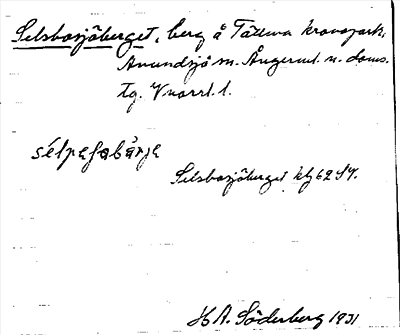 Selsbosjöberget, berg å Tällvva kronopark,
Anundsjö sn. Ångerml. n. doms.
tg. Vnorrl. l.
sélpasabärjə
Selsbosjöberget kbl 62 SV.
H A. Söderberg 1931